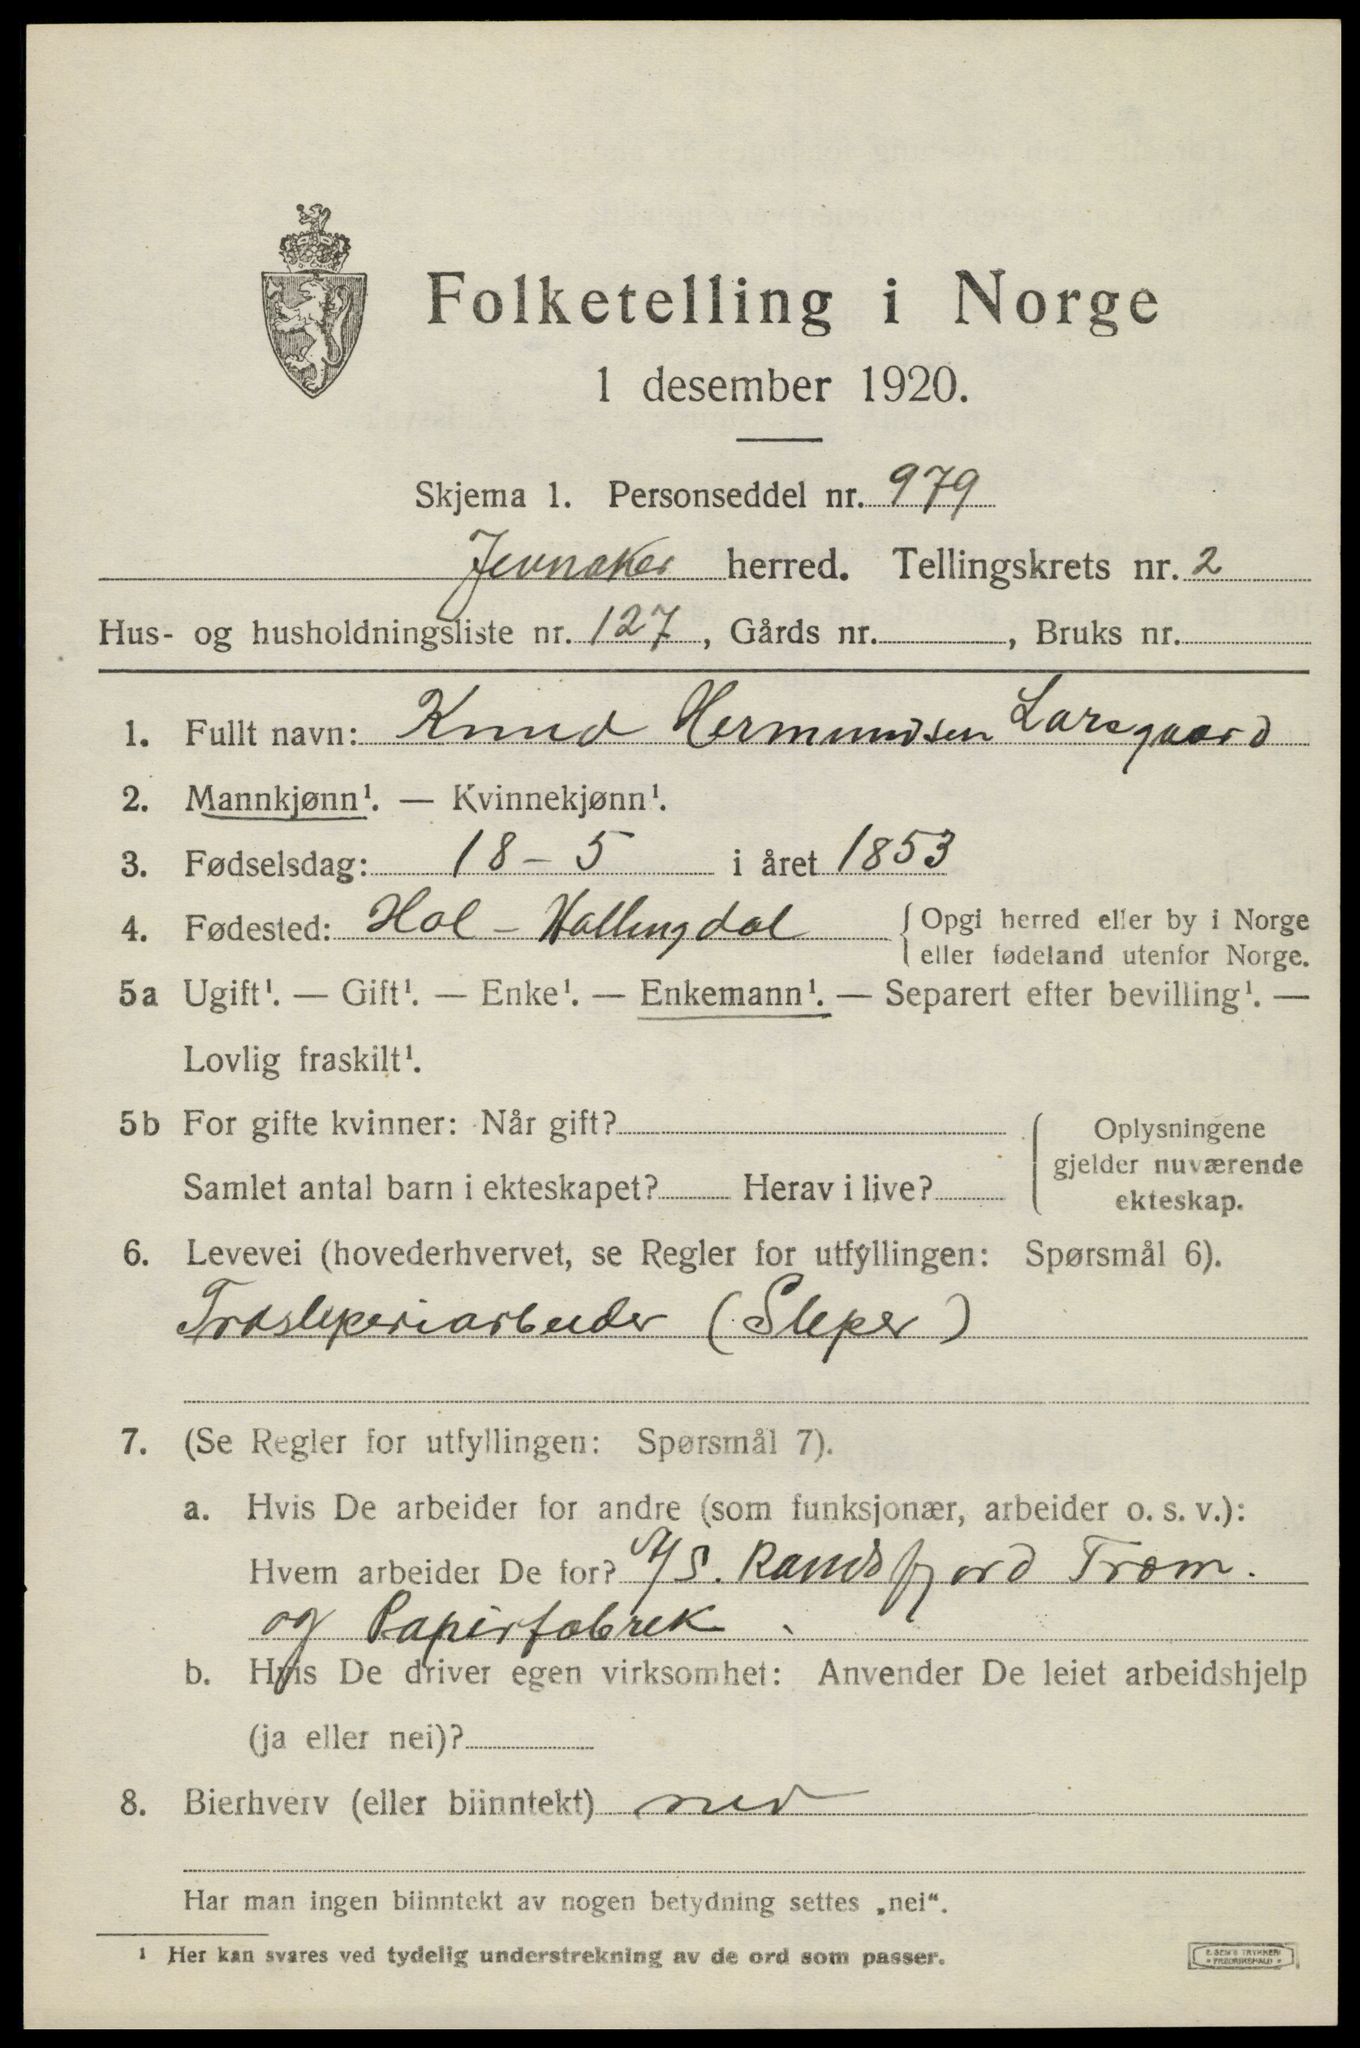 Folketelling i Norge
1 desember 1920.
Skjema 1. Personseddel nr. 979
Jevnaker herred. Tellingskrets nr. 2
Hus- og husholdningsliste nr. 127, Gårds nr. , Bruks nr.
1. Fullt navn: Knud Hermundsen Larsgaard
2. Mannkjønn¹. — Kvinnekjønn¹.
3. Fødselsdag: 18 – 5 i året 1853
4. Fødested: Hol – Hallingdal { Opgi herred eller by i Norge
eller fødeland utenfor Norge.
5a Ugift¹. — Gift¹. — Enke¹. — Enkemann¹. — Separert efter bevilling¹. —
Lovlig fraskilt¹.
5b For gifte kvinner: Når gift?
Samlet antal barn i ekteskapet? Herav i live?
Oplysningene
gjelder nuværende
ekteskap.
6. Levevei (hovederhvervet, se Regler for utfyllingen: Spørsmål 6).
Træsliperiarbeider (Sliper)
7. (Se Regler for utfyllingen: Spørsmål 7).
a. Hvis De arbeider for andre (som funksjonær, arbeider o. s. v.):
Hvem arbeider De for? A/S. Randsfjord Træm.
og Papirfabrek
b. Hvis De driver egen virksomhet: Anvender De leiet arbeidshjelp
(ja eller nei)?
8. Bierhverv (eller biinntekt) nei
Har man ingen biinntekt av nogen betydning settes „nei“.
¹ Her kan svares ved tydelig understrekning av de ord som passer.
E. SEM'S TRYKKERI
• FREDRIKSHALD •